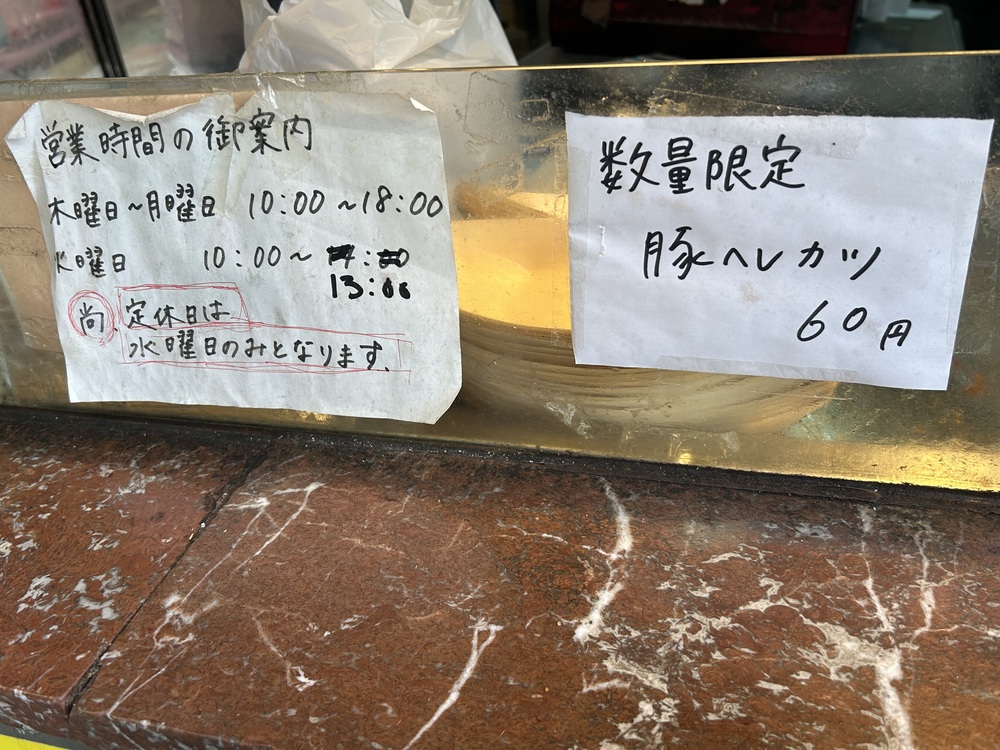 営業時間の御案内
木曜日～月曜日 10:00～18:00
火曜日 10:00～
13:00
尚、定休日は
水曜日のみとなります。
数量限定
豚ヘレカツ
60円